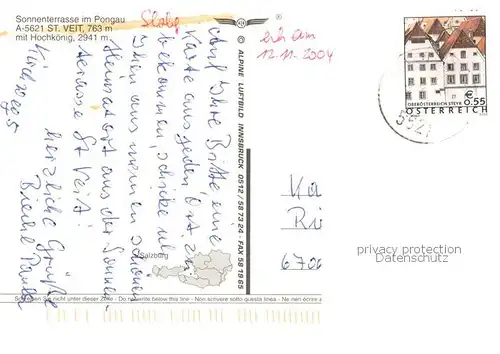 Sonnenterrasse im Pongau
A-5621 ST. VEIT, 763 m
mit Hochkönig, 2941 m
© ALPINE LUFTBILD INNSBRUCK 0512 / 58 73 24 - FAX 58 19 65
erh. am
12.11.2004
auf Ihre Bitte, eine
Karte aus jedem Ort zu
bekommen, schicke ich
Ihnen aus meinem schönen
Heimatort aus der Sonnen
terrasse St. Veit!
herzliche Grüße
Salzburg
Ka
Ri
6706
€ 0.55
OBERÖSTERREICH STEYR
ÖSTERREICH
5621
privacy protection
Datenschutz
Schreiben Sie nicht unter dieser Zeile - Do not write below this line - Non scrivere sotto questa linea - Ne rien